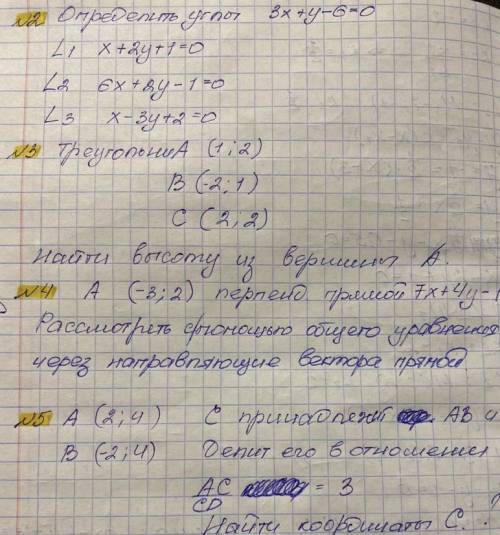 №2 Определить углы 3x+y-6=0
L1 x+2y+1=0
L2 6x+2y-1=0
L3 x-3y+2=0
№3 Треугольник A (1;2)
B (-2;1)
C (2;2)
Найти высоту из вершины A.
№4 A (-3;2) перпенд. прямой 7x+4y-1
Рассмотреть с помощью общего уравнения
через направляющие вектора прямой.
№5 A (2;4) C принадлежит AB и
B (-2;4) Делит его в отношении
AC/CD = 3
Найти координаты C. ?